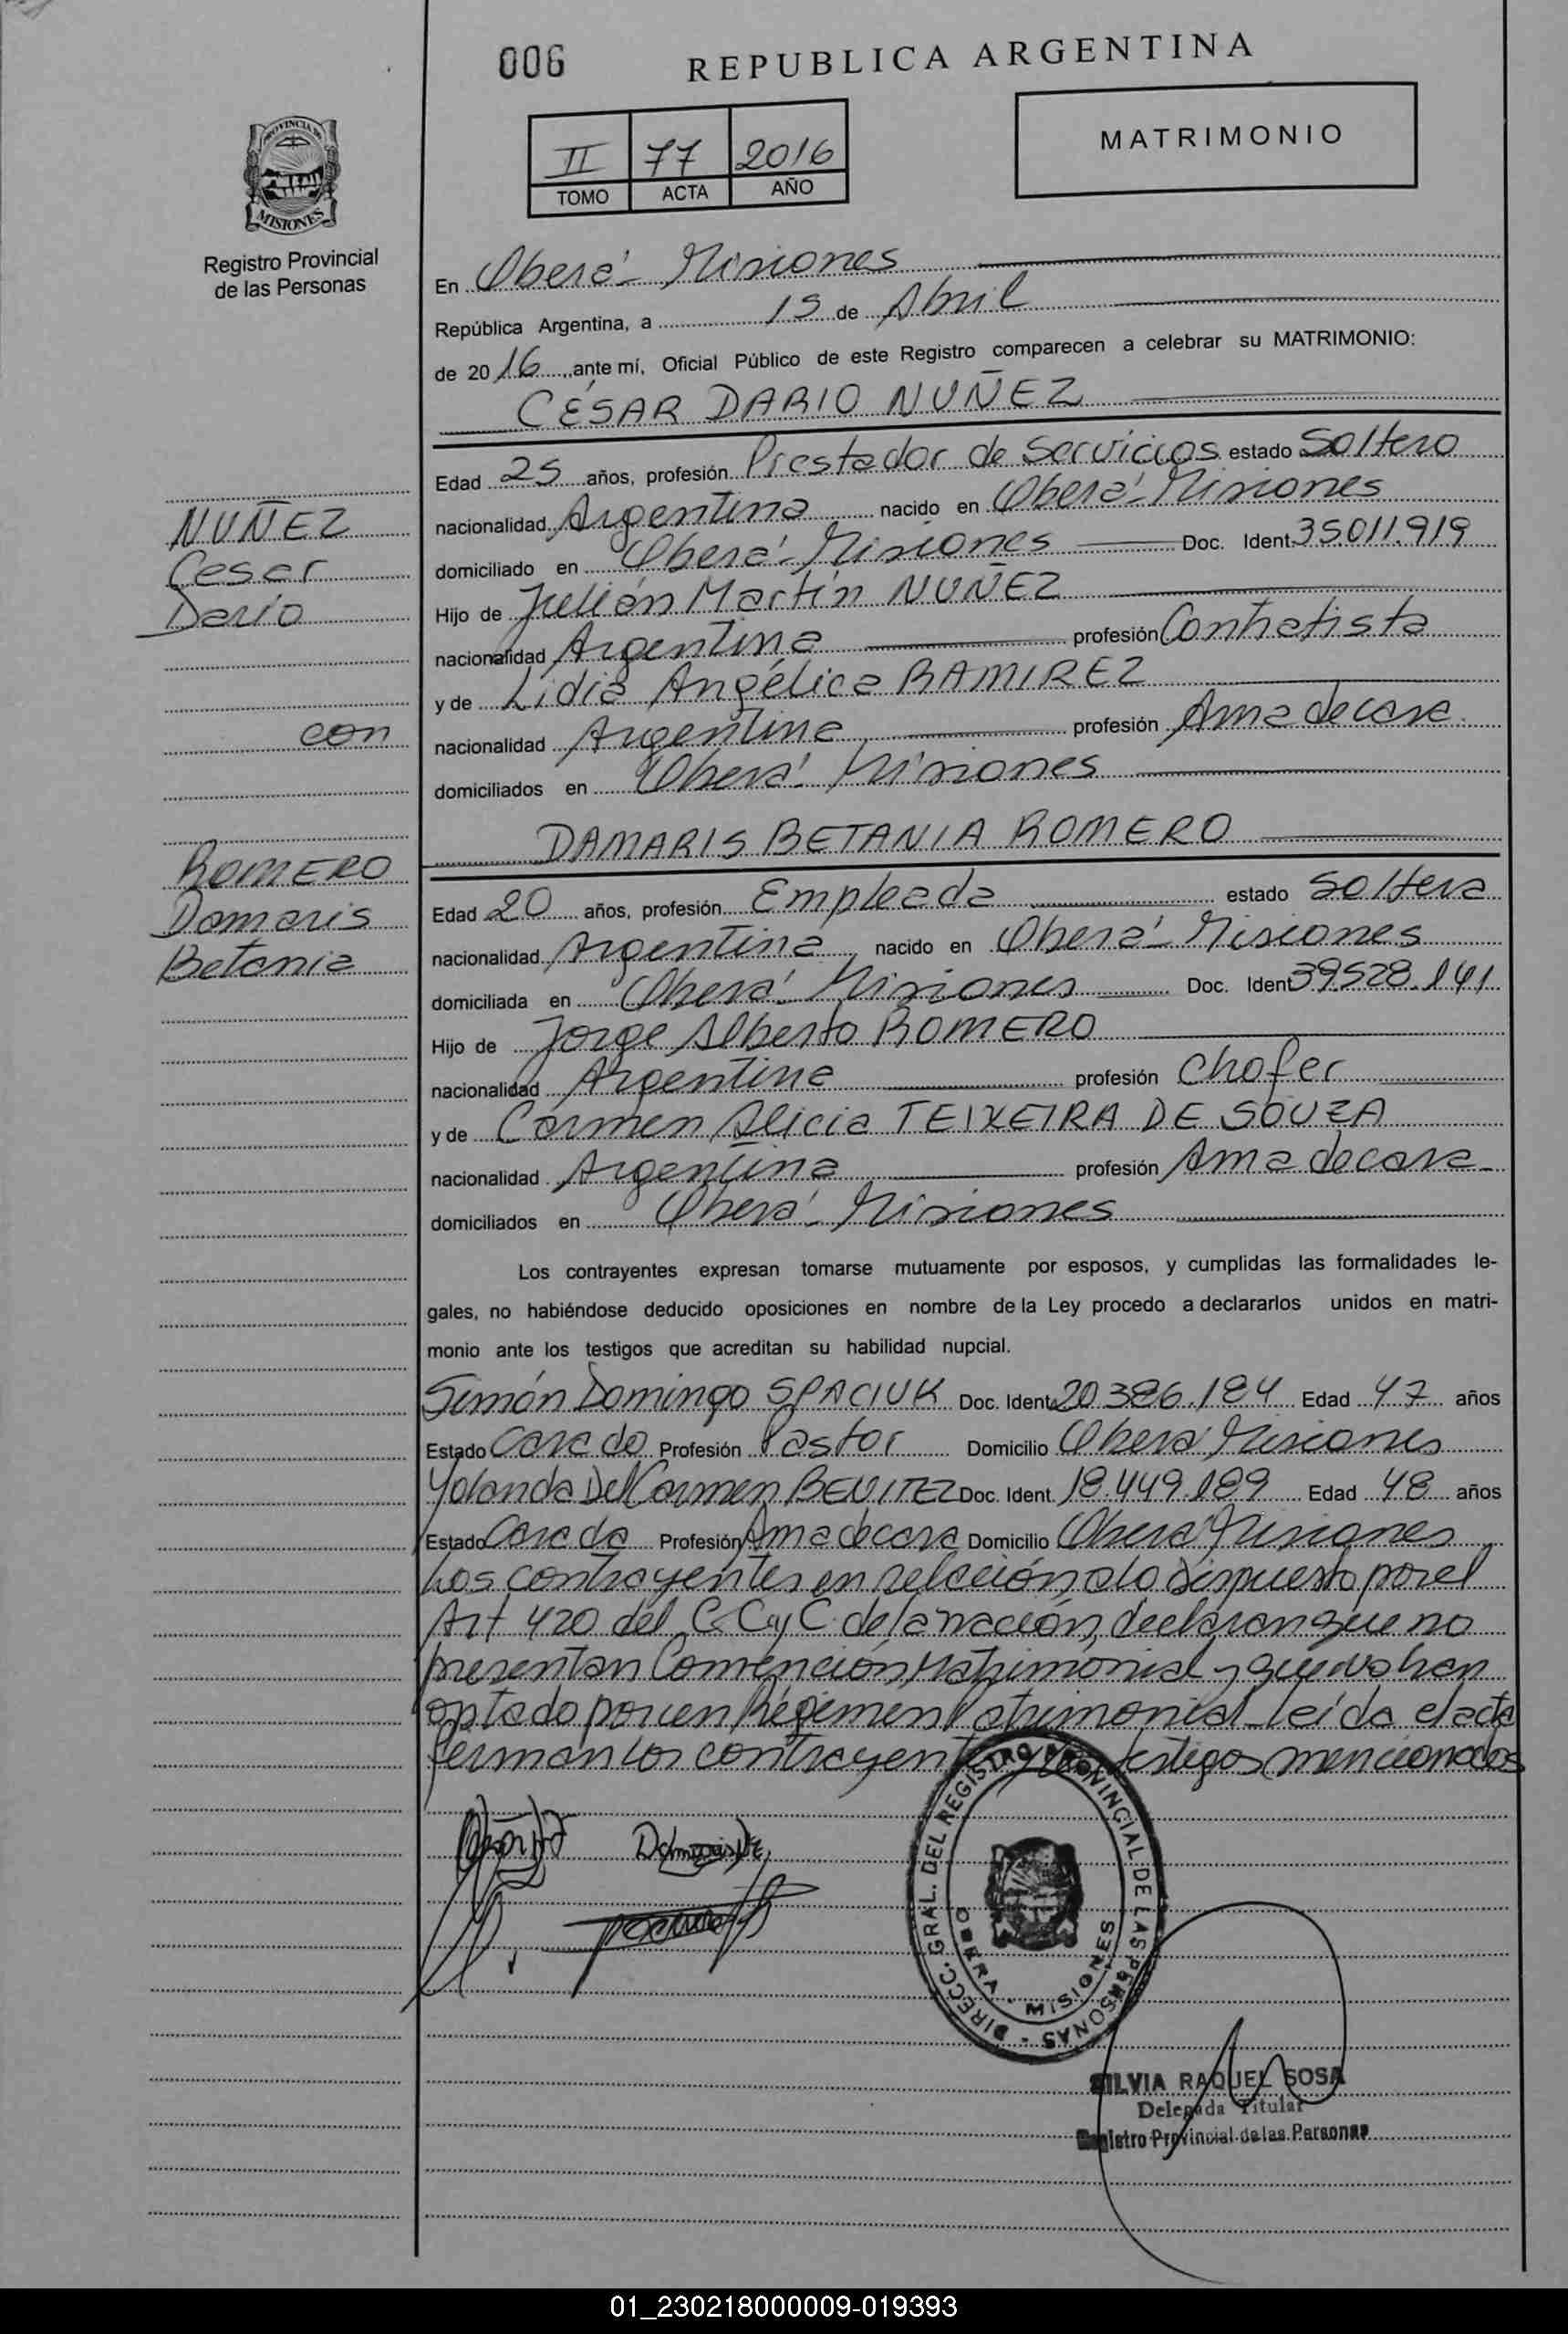 006
REPUBLICA ARGENTINA
II 77 2016
TOMO ACTA AÑO
MATRIMONIO
PROVINCIA DE
MISIONES
Registro Provincial
de las Personas
En Oberá - Misiones
República Argentina, a 15 de Abril
de 2016 ante mí, Oficial Público de este Registro comparecen a celebrar su MATRIMONIO:
CÉSAR DARIO NUÑEZ
Edad 25 años, profesión Prestador de Servicios estado Soltero
nacionalidad Argentina nacido en Oberá - Misiones
domiciliado en Oberá - Misiones Doc. Ident. 35.011.919
Hijo de Julián Martín NUÑEZ
nacionalidad Argentina profesión Contratista
y de Lidia Angélica RAMIREZ
nacionalidad Argentina profesión Ama de casa
domiciliados en Oberá - Misiones
NUÑEZ
Cesar
Dario
con
ROMERO
Damaris
Betania
DAMARIS BETANIA ROMERO
Edad 20 años, profesión Empleada estado Soltera
nacionalidad Argentina nacido en Oberá - Misiones
domiciliada en Oberá - Misiones Doc. Ident 39.528.141
Hijo de Jorge Alberto ROMERO
nacionalidad Argentina profesión Chofer
y de Carmen Alicia TEIXEIRA DE SOUZA
nacionalidad Argentina profesión Ama de casa
domiciliados en Oberá - Misiones
Los contrayentes expresan tomarse mutuamente por esposos, y cumplidas las formalidades le-
gales, no habiéndose deducido oposiciones en nombre de la Ley procedo a declararlos unidos en matri-
monio ante los testigos que acreditan su habilidad nupcial.
Simón Domingo SPACIUK Doc. Ident. 20.386.184 Edad 47 años
Estado Casado Profesión Pastor Domicilio Oberá Misiones
Yolanda Del Carmen BENITEZ Doc. Ident. 18.449.189 Edad 48 años
Estado Casada Profesión Ama de casa Domicilio Oberá Misiones
Los contrayentes en relación a lo dispuesto por el
Art 420 del C.C y C. de la nación, declaran que no
presentan Convención Matrimonial y que no han
optado por un Régimen Patrimonial - leída el acta
firman los contrayentes y los testigos mencionados
DIRECC. GRAL. DEL REGISTRO PROVINCIAL DE LAS PERSONAS
OBERA - MISIONES
SILVIA RAQUEL SOSA
Delegada Titular
Registro Provincial de las Personas
01_230218000009-019393